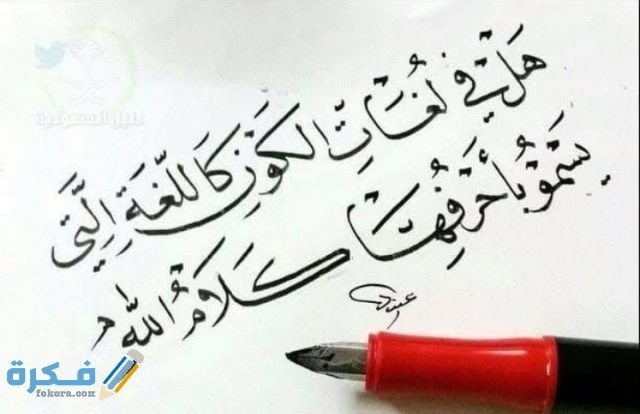 هَلْ فِي لُغَاتِ الكَوْنِ كَاللُّغَةِ الَّتِي
يَسْمُو بِأَحْرُفِهَا كَلَامُ اللهِ
فكرة
fokora.com